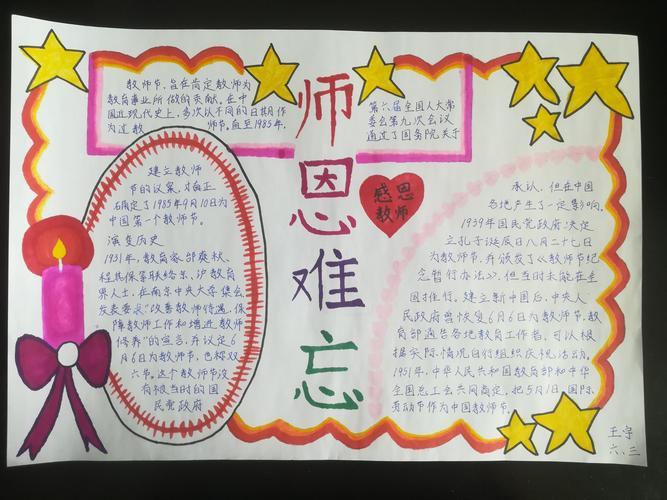 教师节，旨在肯定教师为
教育事业所做的贡献。在中
国近现代史上，多次以不同的日期作
为过教师节。直至1985年，
第六届全国人大常
委会第九次会议
通过了国务院关于
建立教师
节的议案，才真正
确定了1985年9月10日为
中国第一个教师节。
演变历史
1931年，教育家邰爽秋、
程其保等联络京、沪教育
界人士，在南京中央大学集会，
发表要求“改善教师待遇，保
障教师工作和增进教师
修养”的宣言，并议定6
月6日为教师节，也称双
六节。这个教师节没
有被当时的国
民党政府
师恩难忘
感恩
教师
承认，但在中国
各地产生了一定影响。
1939年国民党政府决定
立孔子诞辰日八月二十七日
为教师节，并颁发了《教师节纪
念暂行办法》，但当时未能在全
国推行。建立新中国后，中央人
民政府曾恢复6月6日为教师节，教
育部通告各地教育工作者，可以根
据实际情况自行组织庆祝活动。
1951年，中华人民共和国教育部和中华
全国总工会共同商定，把5月1日国际
劳动节作为中国教师节。
王宇
六、三